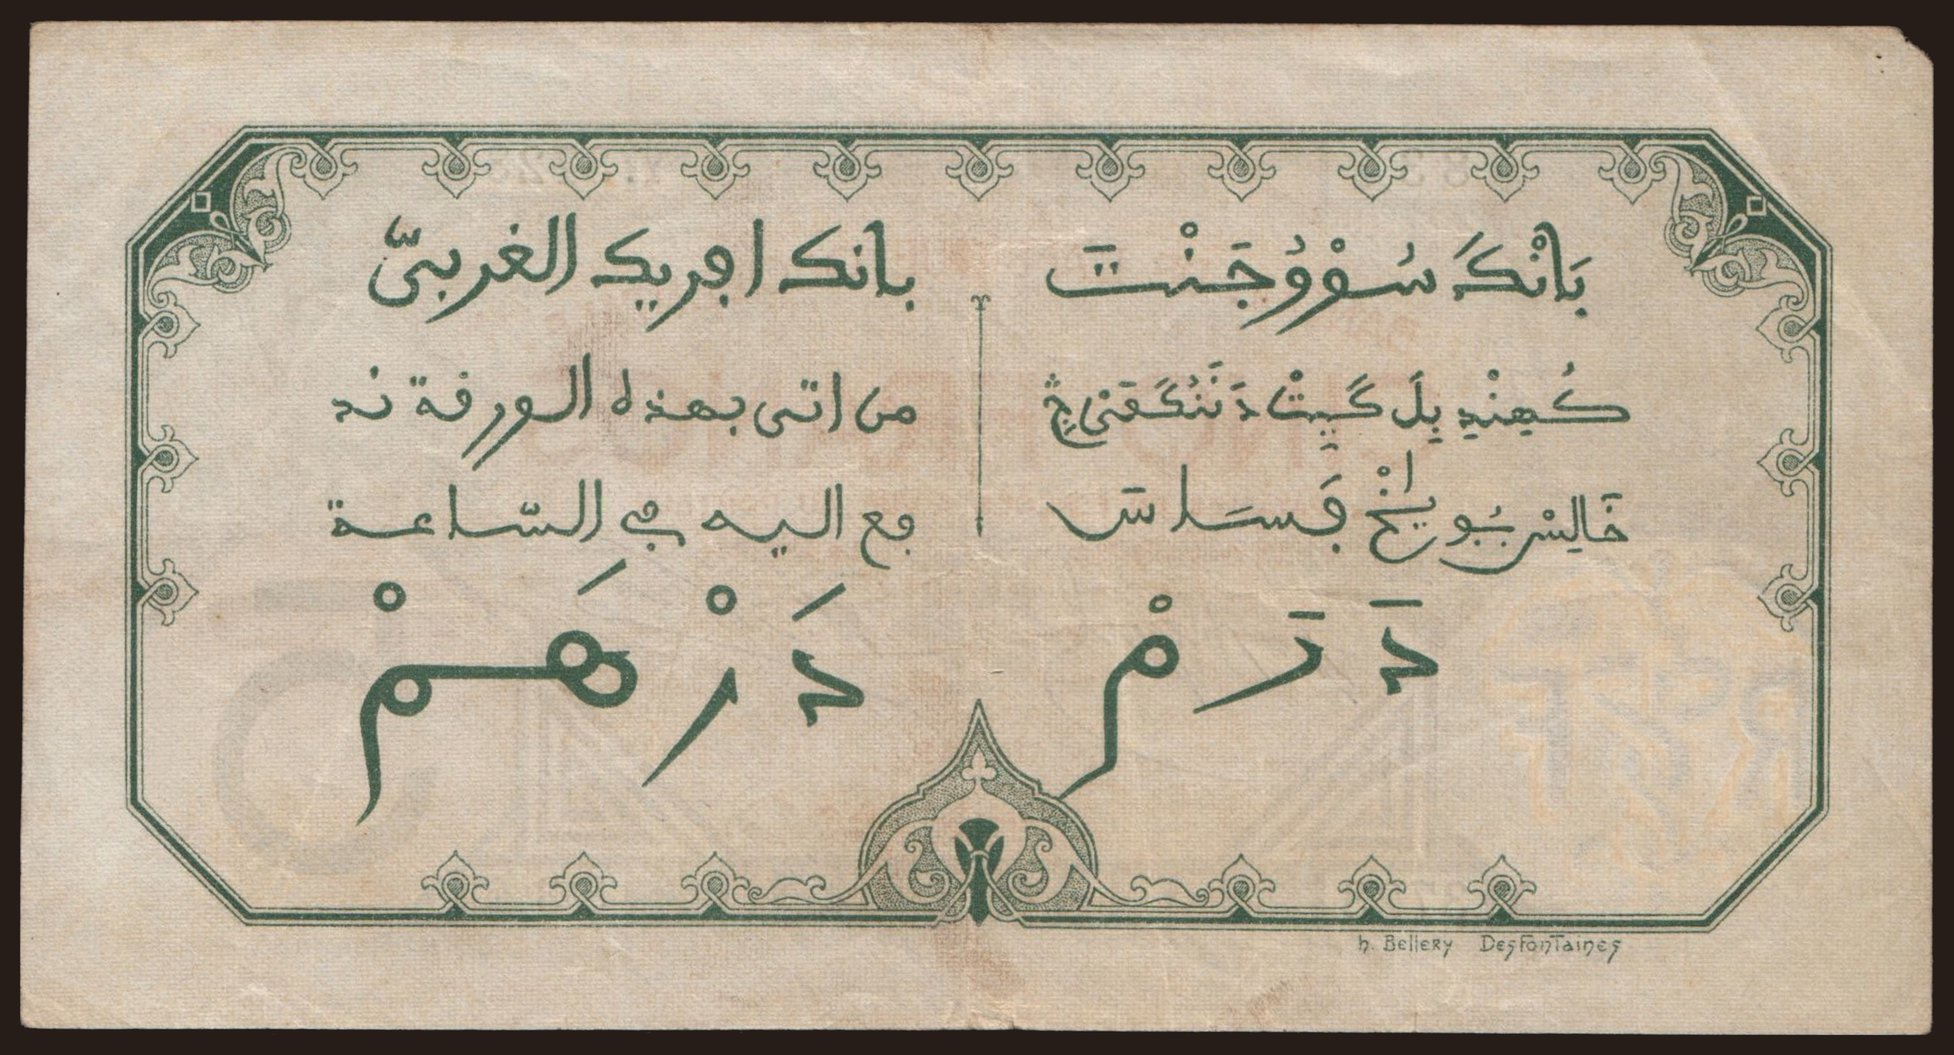 بَانْكَ سُوْوُجَنْتَ
كُهِنْدِ بِلَ كَيِتْ دَنَنُكَقَنِ جِ
خَالِسْ بُيُو
دَرَمْ
بانك افريك الغربيّ
من اتى بهذه الورقة ند
فع اليه في السّاعة
دَرْهَمْ
h. Bellery DesFontaines